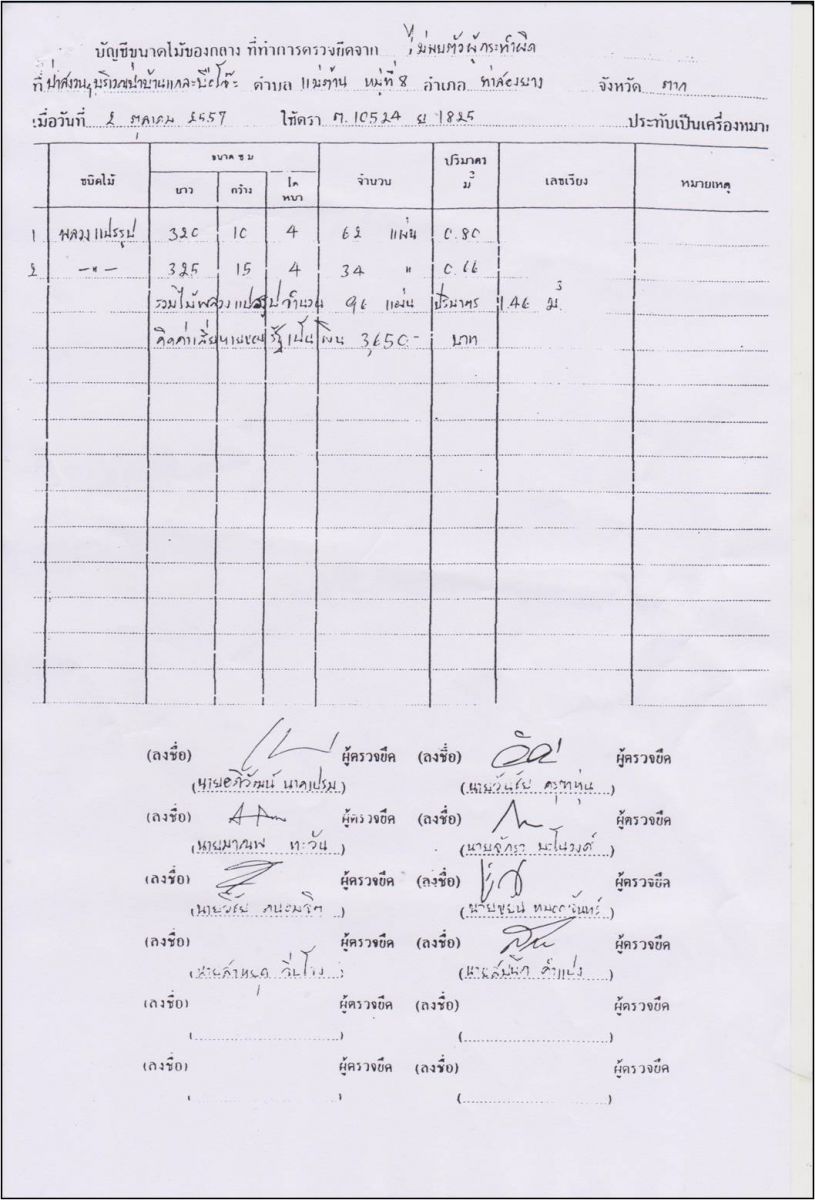 บัญชีขนาดไม้ของกลาง ที่ทำการตรวจยึดจาก ไม่พบตัวผู้กระทำผิด
ที่ ป่าสงวนฯ บริเวณป่าบ้านแกละมือโจ๊ะ ตำบล แม่ต้าน หมู่ที่ 8 อำเภอ ท่าสองยาง จังหวัด ตาก
เมื่อวันที่ 2 ตุลาคม 2557 ใช้ตรา ต. 10524 ย 1825 ประทับเป็นเครื่องหมาย
ชนิดไม้ ขนาด ซ ม จำนวน ปริมาตร ม3 เลขเรียง หมายเหตุ
ยาว กว้าง โต หนา
1 พลวงแปรรูป 320 10 4 62 แผ่น 0.80
2 –"– 325 15 4 34 " 0.66
รวมไม้พลวงแปรรูปจำนวน 96 แผ่น ปริมาตร 1.46 ม3
คิดค่าเสียหายของรัฐเป็นเงิน 3,650.- บาท
(ลงชื่อ) ผู้ตรวจยึด (ลงชื่อ) ผู้ตรวจยึด
(นายอภิวัฒน์ นาคเปรม) (นายวันชัย)
(ลงชื่อ) ผู้ตรวจยึด (ลงชื่อ) ผู้ตรวจยึด
(นายมาณพ ทะวัน) (นายจักรา มะโนวงค์)
(ลงชื่อ) ผู้ตรวจยึด (ลงชื่อ) ผู้ตรวจยึด
(นายวิชัย) (นาย)
(ลงชื่อ) ผู้ตรวจยึด (ลงชื่อ) ผู้ตรวจยึด
(นายสายยุด) (นาย)
(ลงชื่อ) ผู้ตรวจยึด (ลงชื่อ) ผู้ตรวจยึด
(ลงชื่อ) ผู้ตรวจยึด (ลงชื่อ) ผู้ตรวจยึด